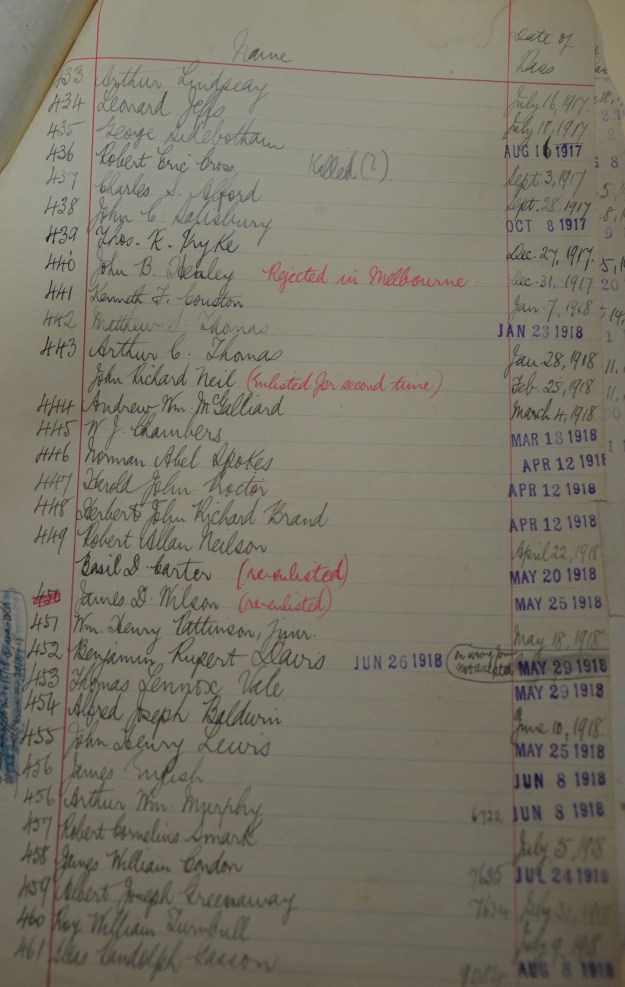 Name Date of Pass
433 Arthur Lindseay July 16, 1917
434 Leonard Jeps July 18, 1917
435 George Sidebotham AUG 16 1917
436 Robert Eric Cross Killed (?) Sept 3, 1917
437 Charles S. Alford Sept. 28, 1917
438 John C. Salisbury OCT 8 1917
439 Thos. K. Kryke Dec. 27, 1917
440 John B. Henley Rejected in Melbourne Dec. 31, 1917
441 Kenneth F. Couston Jan. 7, 1918
442 Matthew S. Thomas JAN 23 1918
443 Arthur C. Thomas Jan 28, 1918
John Richard Neil (enlisted for second time) Feb. 25, 1918
444 Andrew Wm. McGalliard March 4, 1918
445 W. J. Chambers MAR 18 1918
446 Norman Abel Spokes APR 12 1918
447 Harold John Proctor APR 12 1918
448 Herbert John Richard Brand APR 12 1918
449 Robert Allan Neilson April 22, 1918
Basil D. Carter (re-enlisted) MAY 20 1918
450 James D. Wilson (re-enlisted) MAY 25 1918
451 Wm. Henry Pattinson, Junr. May 18, 1918
452 Benjamin Rupert Davis JUN 26 1918 MAY 29 1918
453 Thomas Lennox Vale MAY 29 1918
454 Alfred Joseph Baldwin June 10, 1918
455 John Henry Lewis MAY 25 1918
456 James JUN 8 1918
456 Arthur Wm. Murphy 6722 JUN 8 1918
457 Robert Cornelius Smark July 5, 1918
458 James William Condon 7635 JUL 24 1918
459 Albert Joseph Greenaway 7634 July 31, 1918
460 Roy William Turnbull July 9, 1918
461 Silas Randolph Casson AUG 8 1918